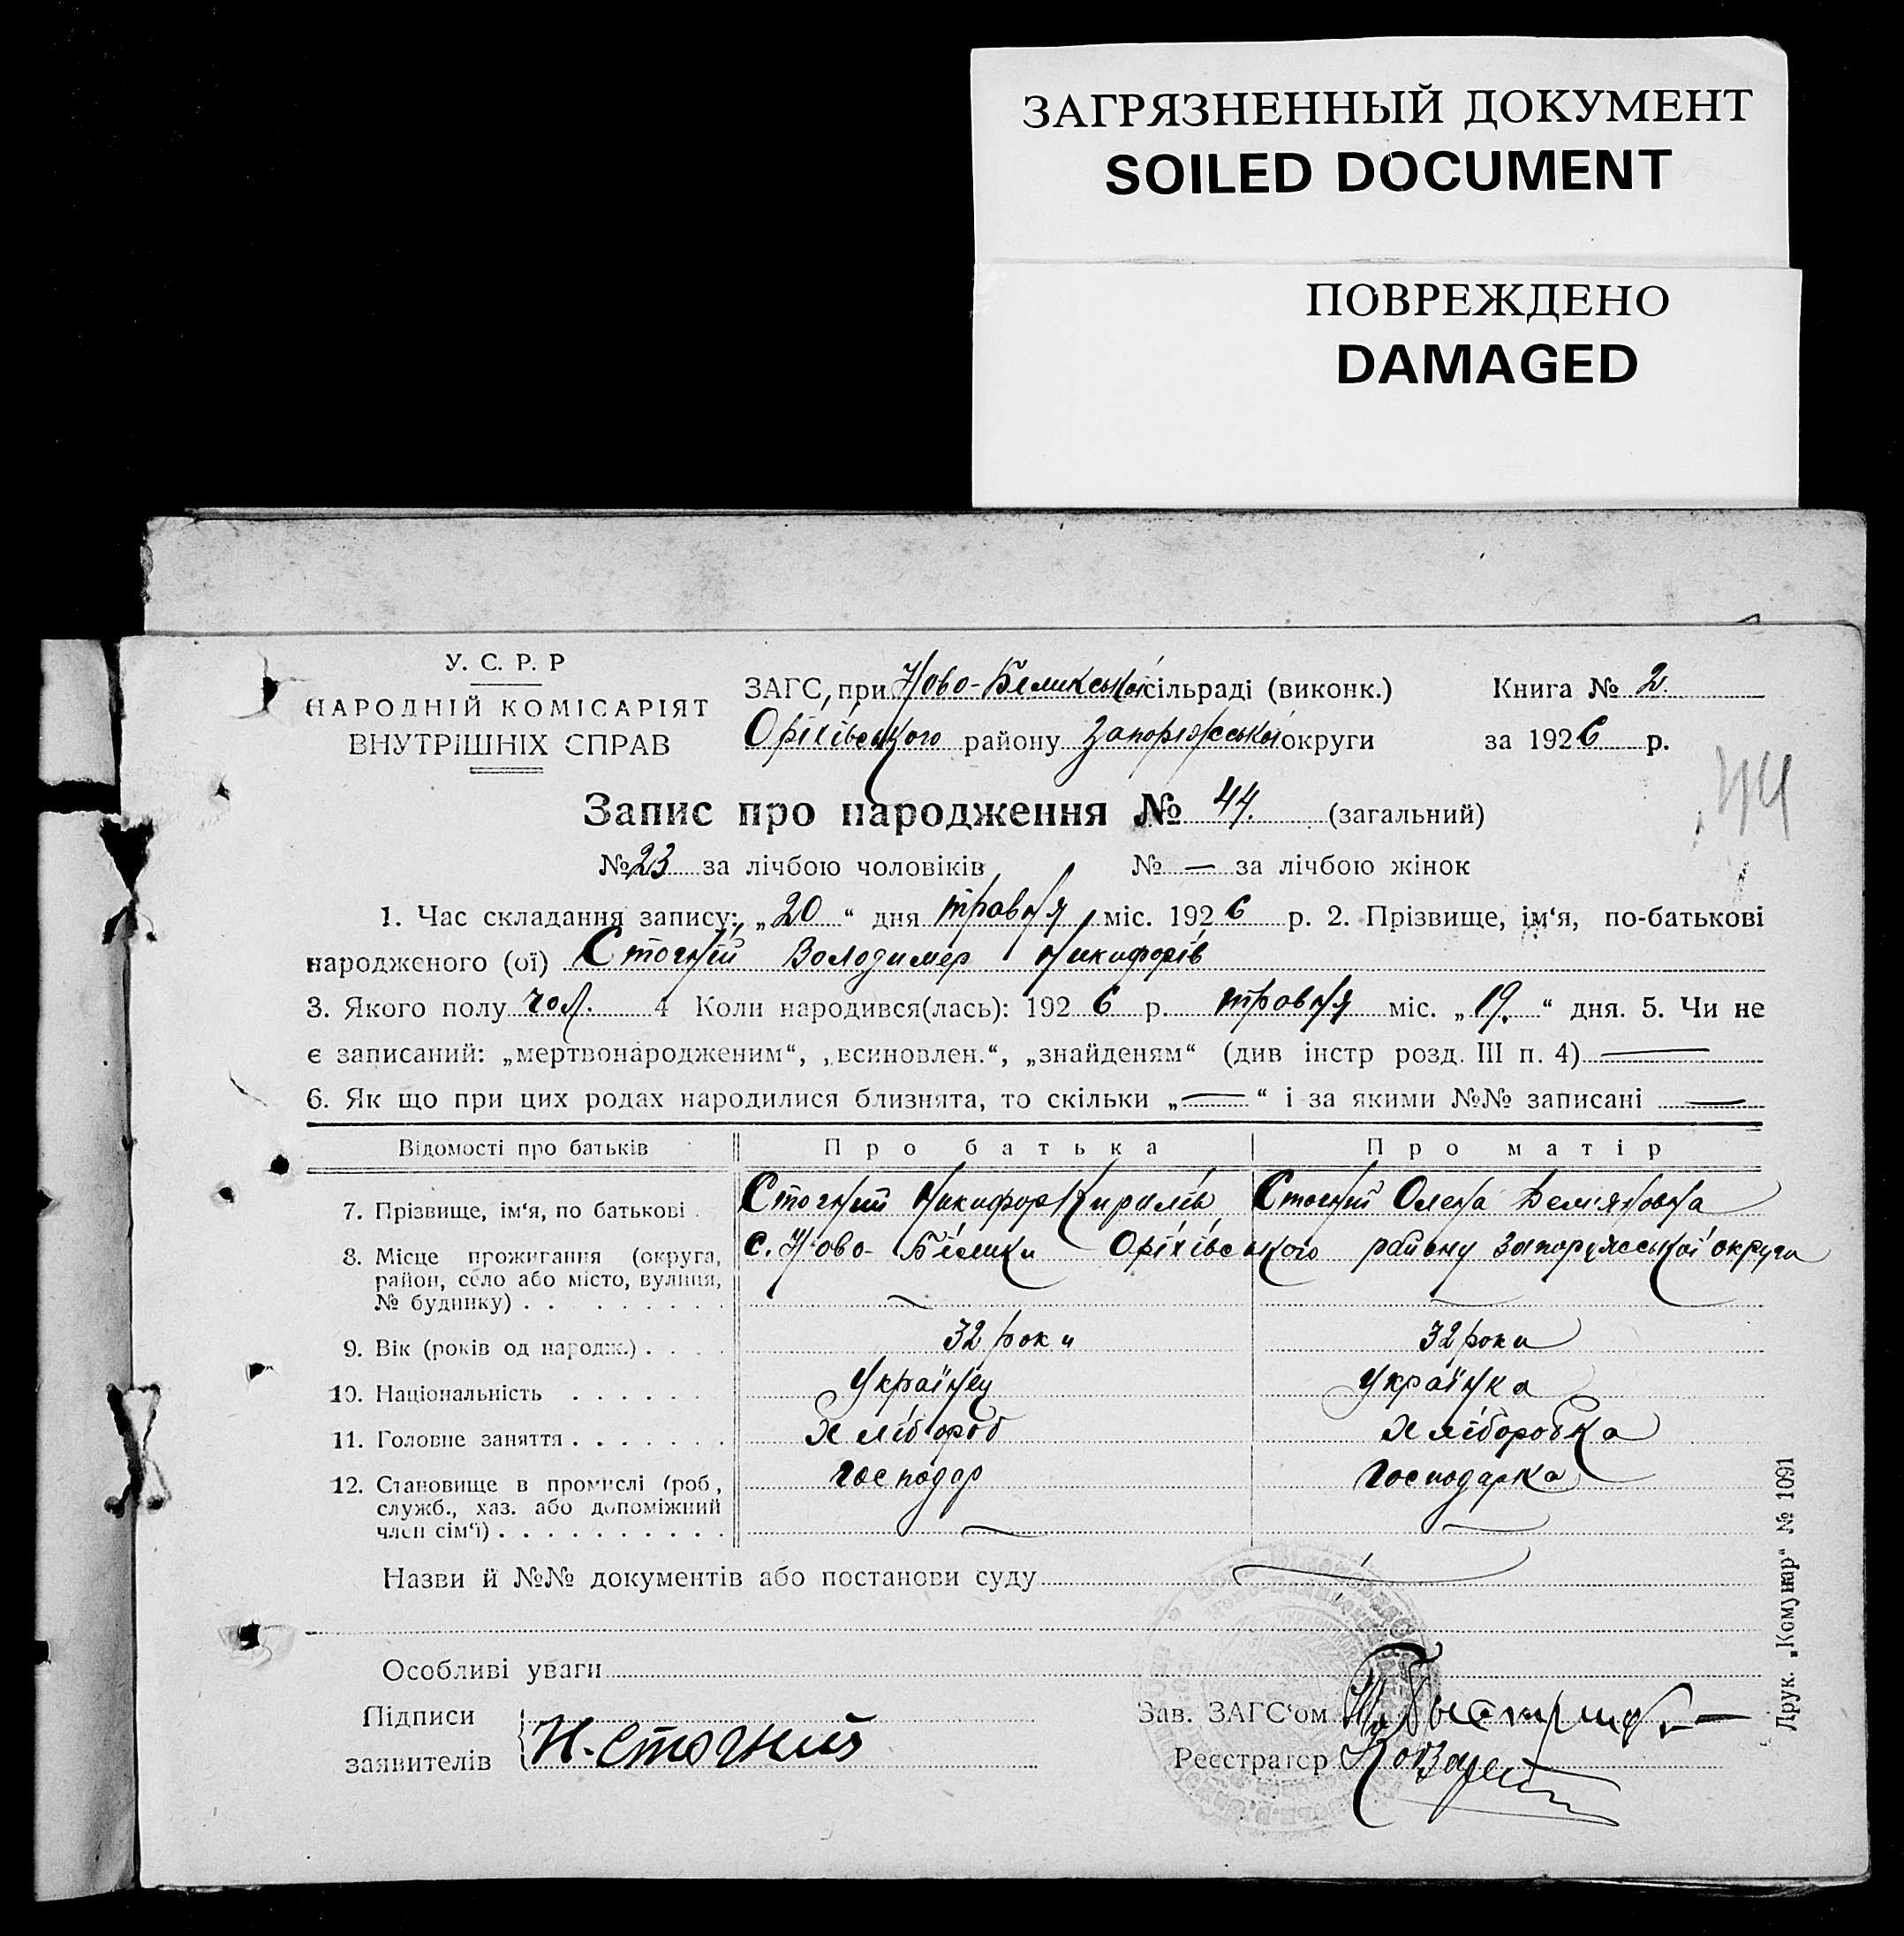 ЗАГРЯЗНЕННЫЙ ДОКУМЕНТ
SOILED DOCUMENT
ПОВРЕЖДЕНО
DAMAGED
У. С. Р. Р
НАРОДНІЙ КОМІСАРІЯТ
ВНУТРІШНІХ СПРАВ
ЗАГС, при Ново-Беликській сільраді (виконк.) Книга № 2
Оріхівського району Запоріжської округи за 1926 р.
Запис про народження № 44. (загальний)
44
№ 23 за лічбою чоловіків № — за лічбою жінок
1. Час складання запису: „20“ дня травня міс. 1926 р. 2. Прізвище, ім‘я, по-батькові
народженого (ої) Стогній Володимер Никифорів
3. Якого полу чол. 4 Коли народився(лась): 1926 р. травня міс. „19.“ дня. 5. Чи не
є записаний: „мертвонародженим“, „всиновлен.“, „знайденям“ (див інстр розд. III п. 4) —
6. Як що при цих родах народилися близнята, то скільки „—“ і за якими №№ записані —
Відомості про батьків Про батька Про матір
7. Прізвище, ім‘я, по батькові Стогний Никифор Кирилів Стогний Олена Демяновна
8. Місце прожигання (округа, с. Ново-Білики Оріхівського району Запоружської округи
район, село або місто, вулиця,
№ будинку)
9. Вік (років од народж.) 32 роки 32 роки
10. Національність Українец Українка
11. Головне заняття Хлібороб Хліборобка
12. Становище в промислі (роб, господар Господарка
служб., хаз. або допоміжний
член сім‘ї)
Назви й №№ документів або постанови суду —
Особливі уваги
Підписи
заявителів Н. Стогний
Зав. ЗАГС‘ом
Реєстратор
Друк. „Комунар“ № 1091